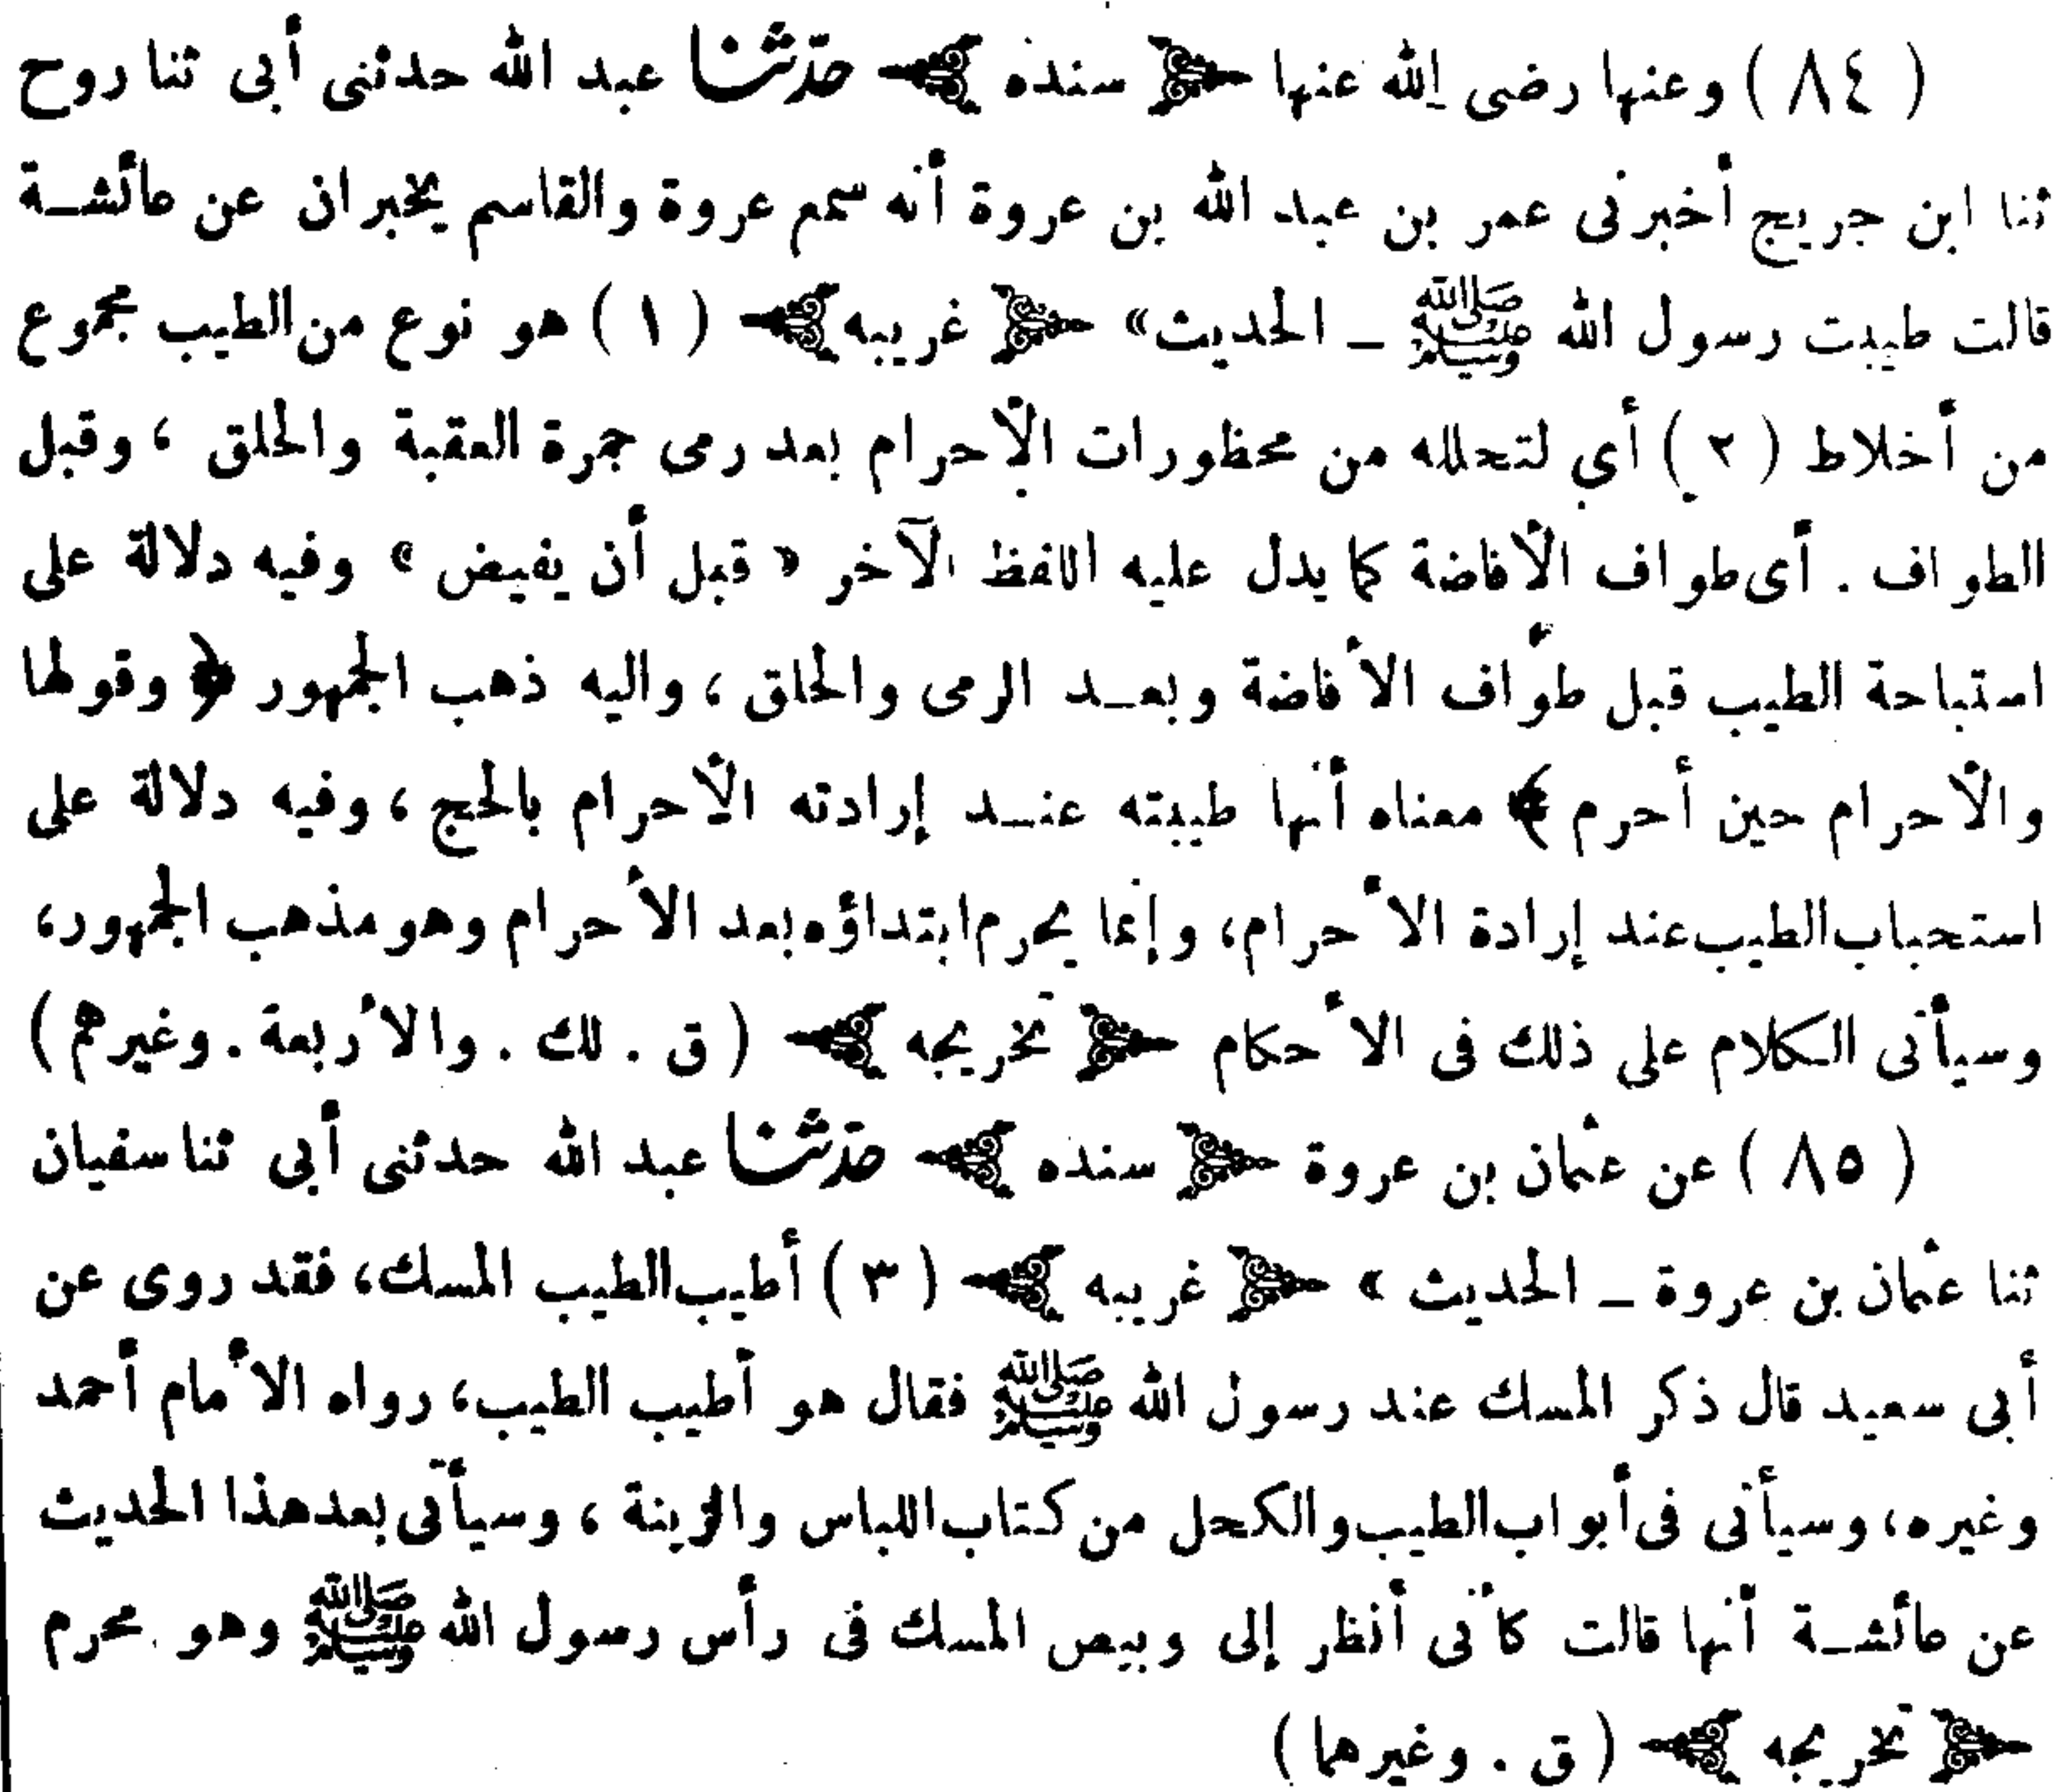 ( ٨٤ ) وعنها رضى الله عنها ﴿ سنده ﴾ حدّثنا عبد الله حدثنى أبى ثنا روح
ثنا ابن جريج أخبرنى عمر بن عبد الله بن عروة أنه سمع عروة والقاسم يخبران عن عائشة
قالت طيبت رسول الله ﷺ ـ الحديث» ﴿ غريبه ﴾ ( ١ ) هو نوع من الطيب مجموع
من أخلاط ( ٢ ) أي لتحلله من محظورات الأحرام بعد رمى جمرة العقبة والحلق ، وقبل
الطواف . أى طواف الأفاضة كما يدل عليه اللفظ الآخر « قبل أن يفيض » وفيه دلالة على
استباحة الطيب قبل طواف الأفاضة وبعد الرمى والحلق ، واليه ذهب الجمهور ﴿ وقولها
والأحرام حين أحرم ﴾ معناه أنها طيبته عند إرادته الأحرام بالحج ، وفيه دلالة على
استحباب الطيب عند إرادة الأحرام، وإنما يحرم ابتداؤه بعد الأحرام وهو مذهب الجمهور،
وسيأتى الكلام على ذلك فى الأحكام ﴿ تخريجه ﴾ ( ق . لك . والأربعة . وغيرهم )
( ٨٥ ) عن عثمان بن عروة ﴿ سنده ﴾ حدّثنا عبد الله حدثنى أبى ثنا سفيان
ثنا عثمان بن عروة ـ الحديث » ﴿ غريبه ﴾ ( ٣ ) أطيب الطيب المسك، فقد روى عن
أبى سعيد قال ذكر المسك عند رسول الله ﷺ فقال هو أطيب الطيب، رواه الأمام أحمد
وغيره، وسيأتى فى أبواب الطيب والكحل من كتاب اللباس والزينة ، وسيأتى بعد هذا الحديث
عن عائشة أنها قالت كأنى أنظر إلى وبيص المسك فى رأس رسول الله ﷺ وهو محرم
﴿ تخريجه ﴾ ( ق . وغيرهما )